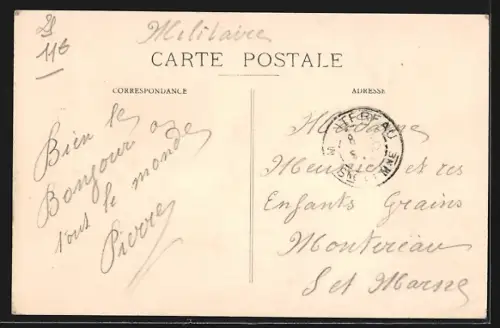 116
Militaire
CARTE POSTALE
CORRESPONDANCE
ADRESSE
Bien le
Bonjour a
tout le monde
Pierre
Madame
Meunier et ses
Enfants Grains
Montereau
S et Marne
NTEREAU